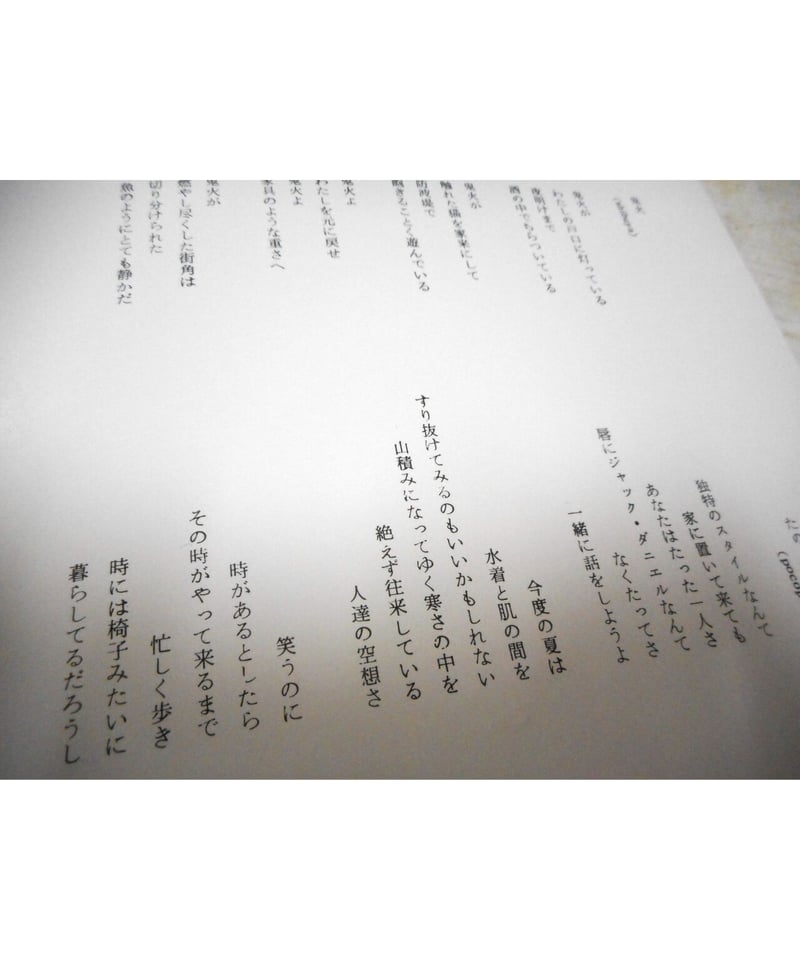 鬼火
鬼火が
わたしの肩口に灯っている
夜明けまで
酒の中でちらついている
鬼火が
触れた猫を家来にして
防波堤で
飽きることなく遊んでいる
鬼火よ
わたしを元に戻せ
鬼火よ
家具のような重さへ
鬼火が
燃やし尽くした街角は
切り分けられた
魚のようにとても静かだ
独特のスタイルなんて
家に置いて来ても
あなたはたった一人さ
唇にジャック・ダニエルなんて
なくたってさ
一緒に話をしようよ
今度の夏は
水着と肌の間を
すり抜けてみるのもいいかもしれない
山積みになってゆく寒さの中を
絶えず往来している
人達の空想さ
笑うのに
時があるとしたら
その時がやって来るまで
忙しく歩き
時には椅子みたいに
暮らしてるだろうし